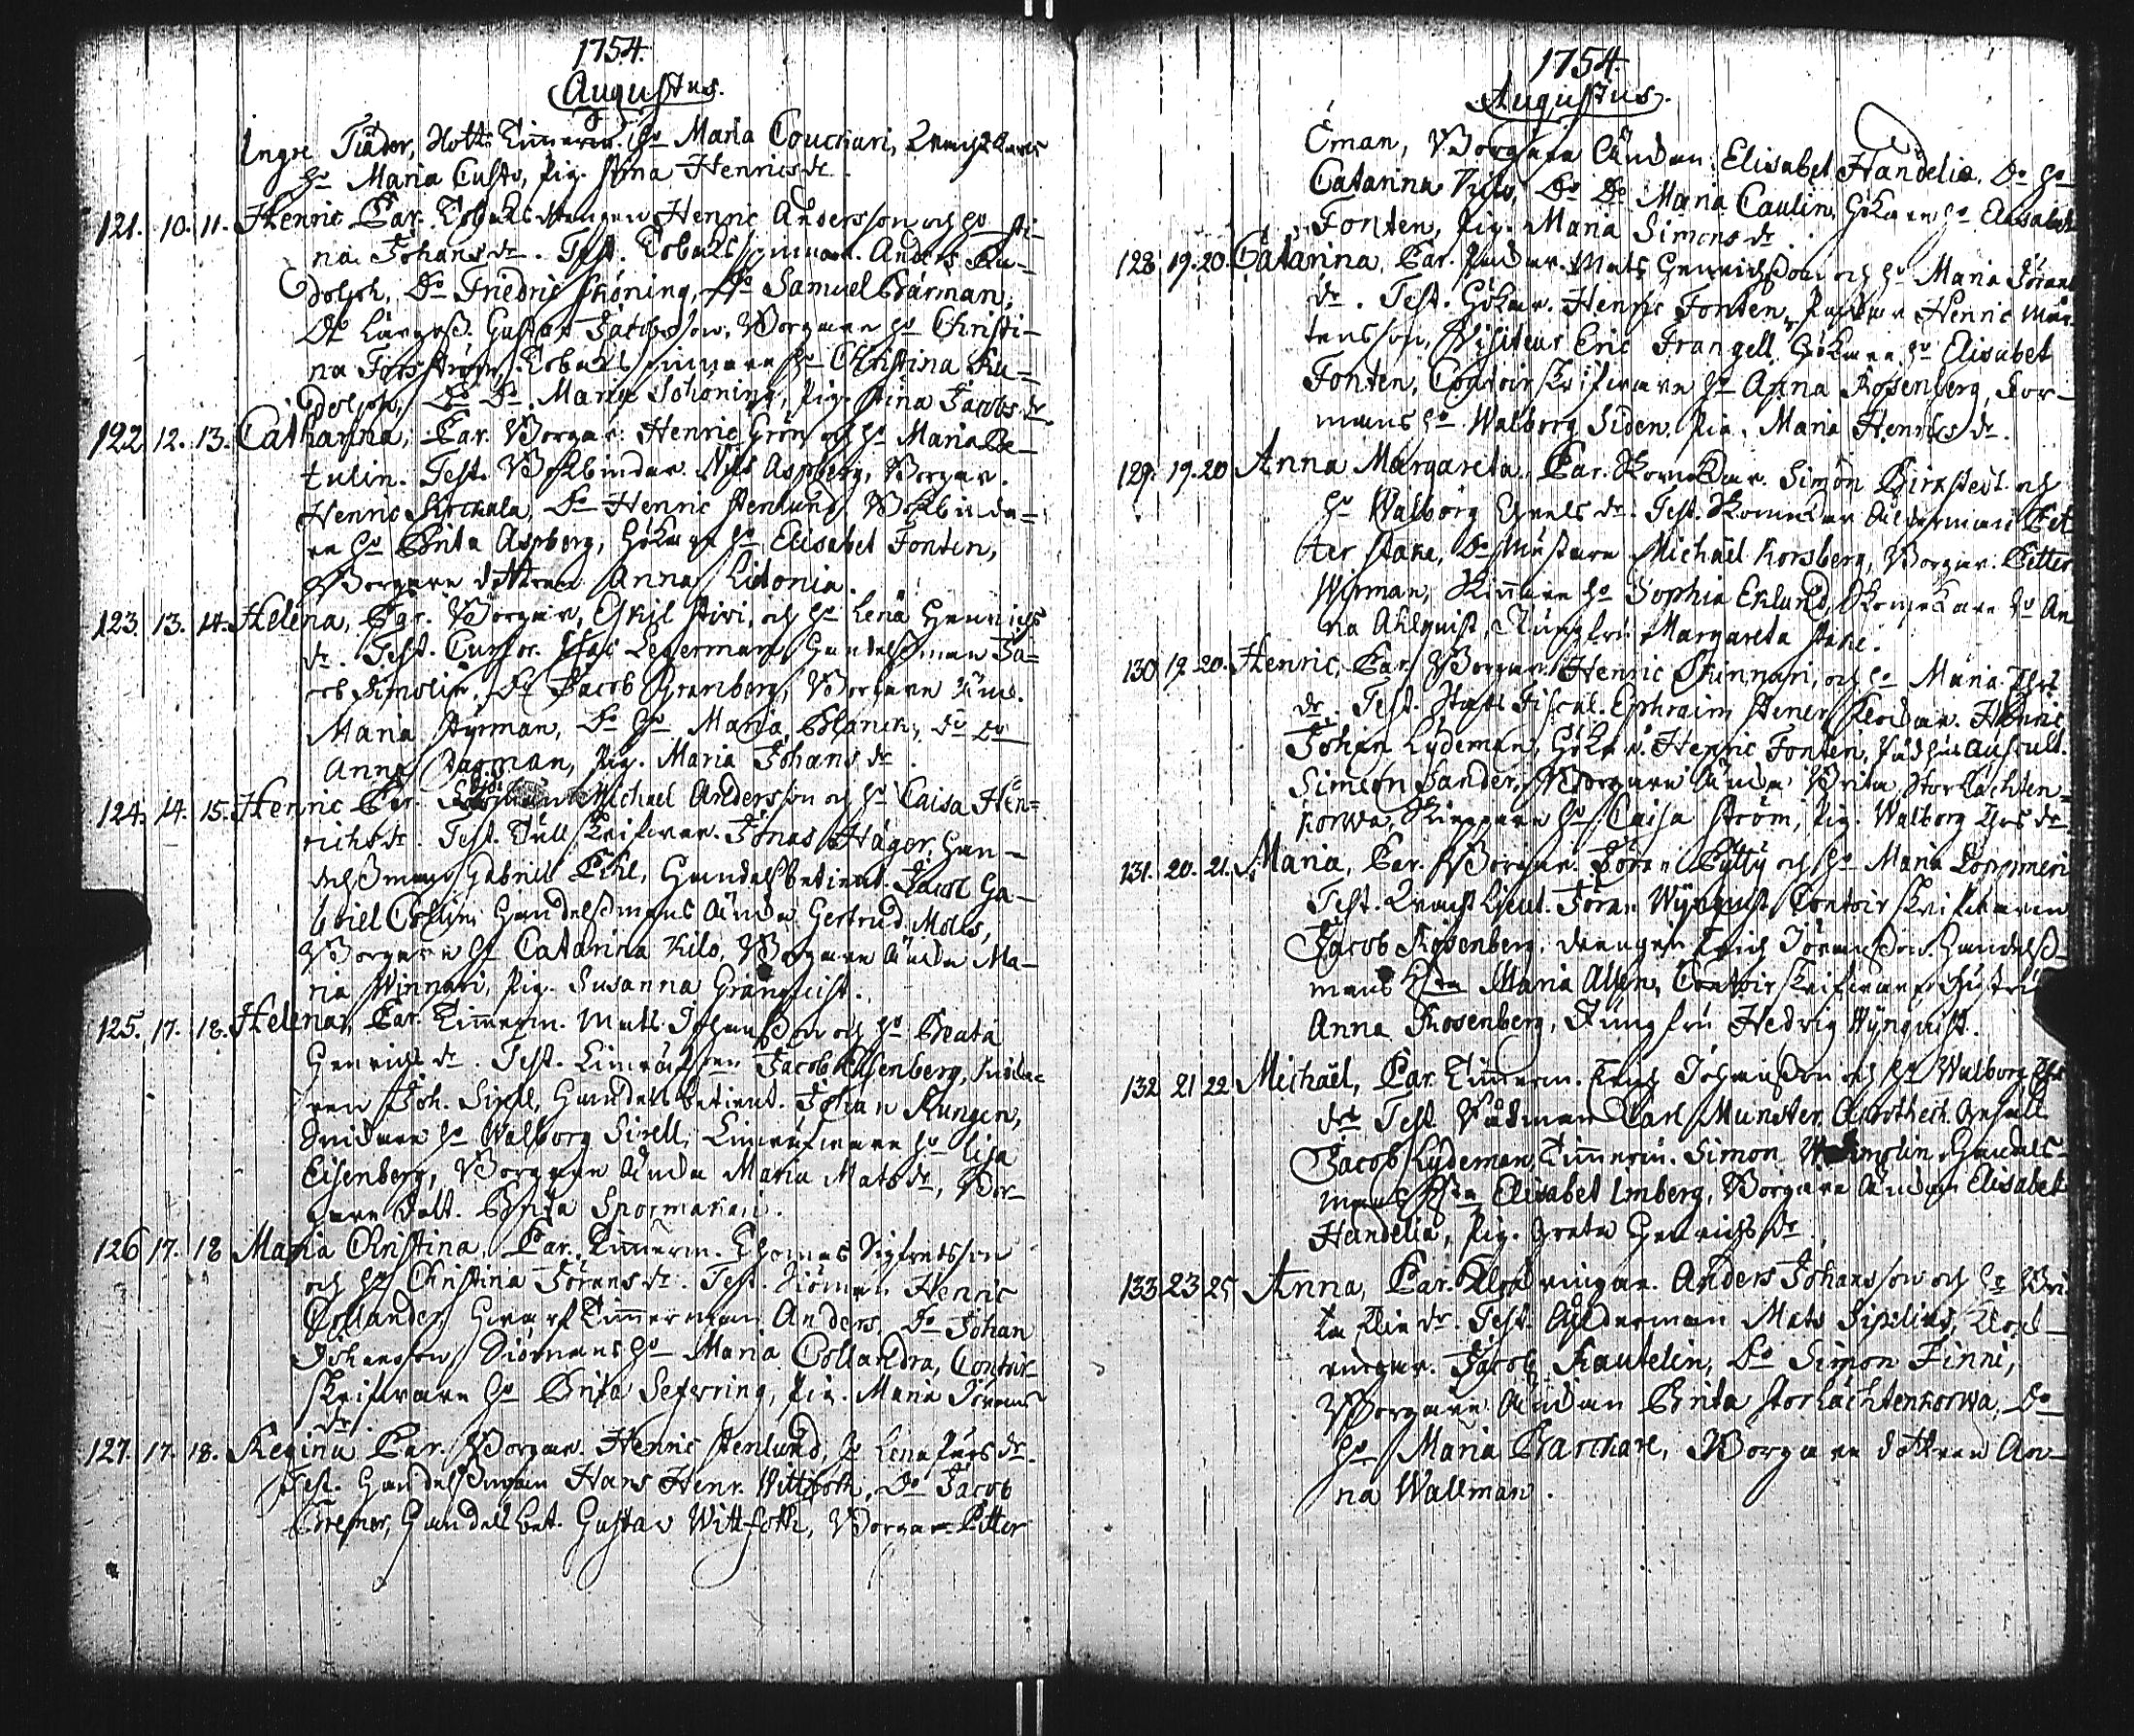 1754.
Augustus.
Ingre Tiäder, Skotts Timmerm. Ho Maria Couckari,
Ho Maria Custo, Pig. Stina Henricsdr
121. 10. 11. Henric Par. Tobaksdrengen Henric Andersson och Ho Sti-
na Johansdr. Test. Tobakspinnar. Anders Ru-
dolph, Do Fredric Schöning, Do Samuel Bärman,
Do Lärgoss. Gustav Jacobsson, Borgare Ho Christi-
na Forsström, Tobakspinnare Ho Christina Ru-
dolph, Do Do Maria Schöning, Pig. Stina Jacobsdr
122 12. 13. Catharina, Par. Borgar. Henric Grön och Ho Maria Be-
tulin. Test. Bokbindar. Nils Aspberg, Borgar.
Henric Kirckala, Do Henric Stenlund, Bokbinda-
re Ho Brita Aspberg, Hökare Ho Elisabet Fonten,
Borgare dottren Anna Lidonia.
123. 13. 14. Helena, Par. Borgar. Eskil Stivi, och Ho Lena Henrichs
dr. Test. Cursor. Staf Legerman, Handelsman Ja-
cob Simolin, Do Jacob Granberg, Borgare
Maria Styrman, Do Ho Maria Blanck, Do Do
Anna Dagman, Pig. Maria Johansdr.
124. 14. 15. Henric Par. Michael Andersson och Ho Caisa Hen-
richsdr. Test. Tullskrifvar. Jonas Häger, Han-
delsman Gabriel Pihl, Handelsbetient. Jacob Ga-
briel Collin, Handelsmans Änka Gertrud Molls,
Borgare Ho Catarina Kilo, Borgare Änka Ma-
ria Winnari, Pig. Susanna Granquist.
125. 17. 18. Helena, Par. Timmerm. Mats Johansson och Ho Beata
Henrichsdr. Test. Jacob Eisenberg,
ren Joh. Sirell, Handelsbetient. Johan Kungen,
Snidare Ho Walborg Sirell, Ho Lisa
Eisenberg, Borgare Änka Maria Matsdr, Bor-
gare dott. Brita Spormakari.
126 17. 18 Maria Christina, Par. Timmerm. Thomas Sigfredsson
och Ho Christina Jöransdr. Test. Siöman Henric
Collander, Timmerman Anders, Do Johan
Johansson, Siömans Ho Maria Collandra, Contoir-
skrifvare Ho Brita Seferring, Pig. Maria Jörans
dr.
127. 17. 18. Regina Par. Borgar. Henric Stenlund, Ho Lena Larsdr.
Test. Handelsman Hans Henr. Wittfoth, Do Jacob
Bremer, Handelsbet. Gustav Wittfoth, Borgar. Petter
1754.
Augustus.
Eman, Borgare Änkan Elisabet Handelia, Do Ho
Catarina Kilo, Do Do Maria Caulin, Hökare Ho Elisabet
Fonten, Pig. Maria Simonsdr
128 19. 20. Catarina, Par. Mats Henrichsson och Ho Maria Jörans
dr. Test. Hökar. Henric Fonten, Henric Mår-
tensson, Visiteur Eric Frangell, Hökare Ho Elisabet
Fonten, Contoirskrifvare Ho Anna Rosenberg, For-
mans Ho Walborg Siden, Pig. Maria Henricsdr.
129. 19. 20 Anna Margareta, Par. Skomakar. Simon Birkstedt och
Ho Walborg Carlsdr. Test. Skomakar Åldermann Pet-
ter Stake, Do Mästare Michaël Korsberg, Borgar. Petter
Wirman, Skinnare Ho Sophia Eklund, Skomakare Do An
na Ahlquist, Jungfru Margareta Stake.
130 19. 20. Henric, Par. Borgar. Henric Skinnari, och Ho Maria
dr. Test. Stads Fiscal. Ephraim Stener, Henric
Johan Lydeman, Hökar. Henric Fonten, Rådhus Auscult.
Simeon Sander, Borgare Änka Brita Storlachten-
korwa, Skeppare Ho Caisa Ström, Pig. Walborg dr
131. 20. 21. Maria, Par. Borgar. Jöran Pytty och Ho Maria Lopmeri
Test. Jöran Wynquist, Contoir skrifvaren
Jacob Rosenberg, drengen Erich Jöransson, Handels-
mans Hstu Maria Alleen, Contoirskrifvare Hustru
Anna Rosenberg, Jungfru Hedvig Wynquist.
132 21 22 Michaël, Par. Timmerm. Erich Johansson och Ho Walborg
dr Test. Rådman Carl Munster, Apothech. Gesäll
Jacob Lydeman, Timmerm. Simon Simolin, Handels-
mans Hstu Elisabet Imberg, Borgare Änkan Elisabet
Handelia, Pig. Greta Henrichsdr.
133 23 25 Anna, Par. Klockringar. Anders Johansson och Ho Bri
ta dr. Test. Ålderman Mats Sipelius, Klock-
ringar. Jacob Kautelin, Do Simon Finne,
Borgare Änkan Brita Storlächtenkorwa, Do
Ho Maria Barckare, Borgare dottren An-
na Wallman.